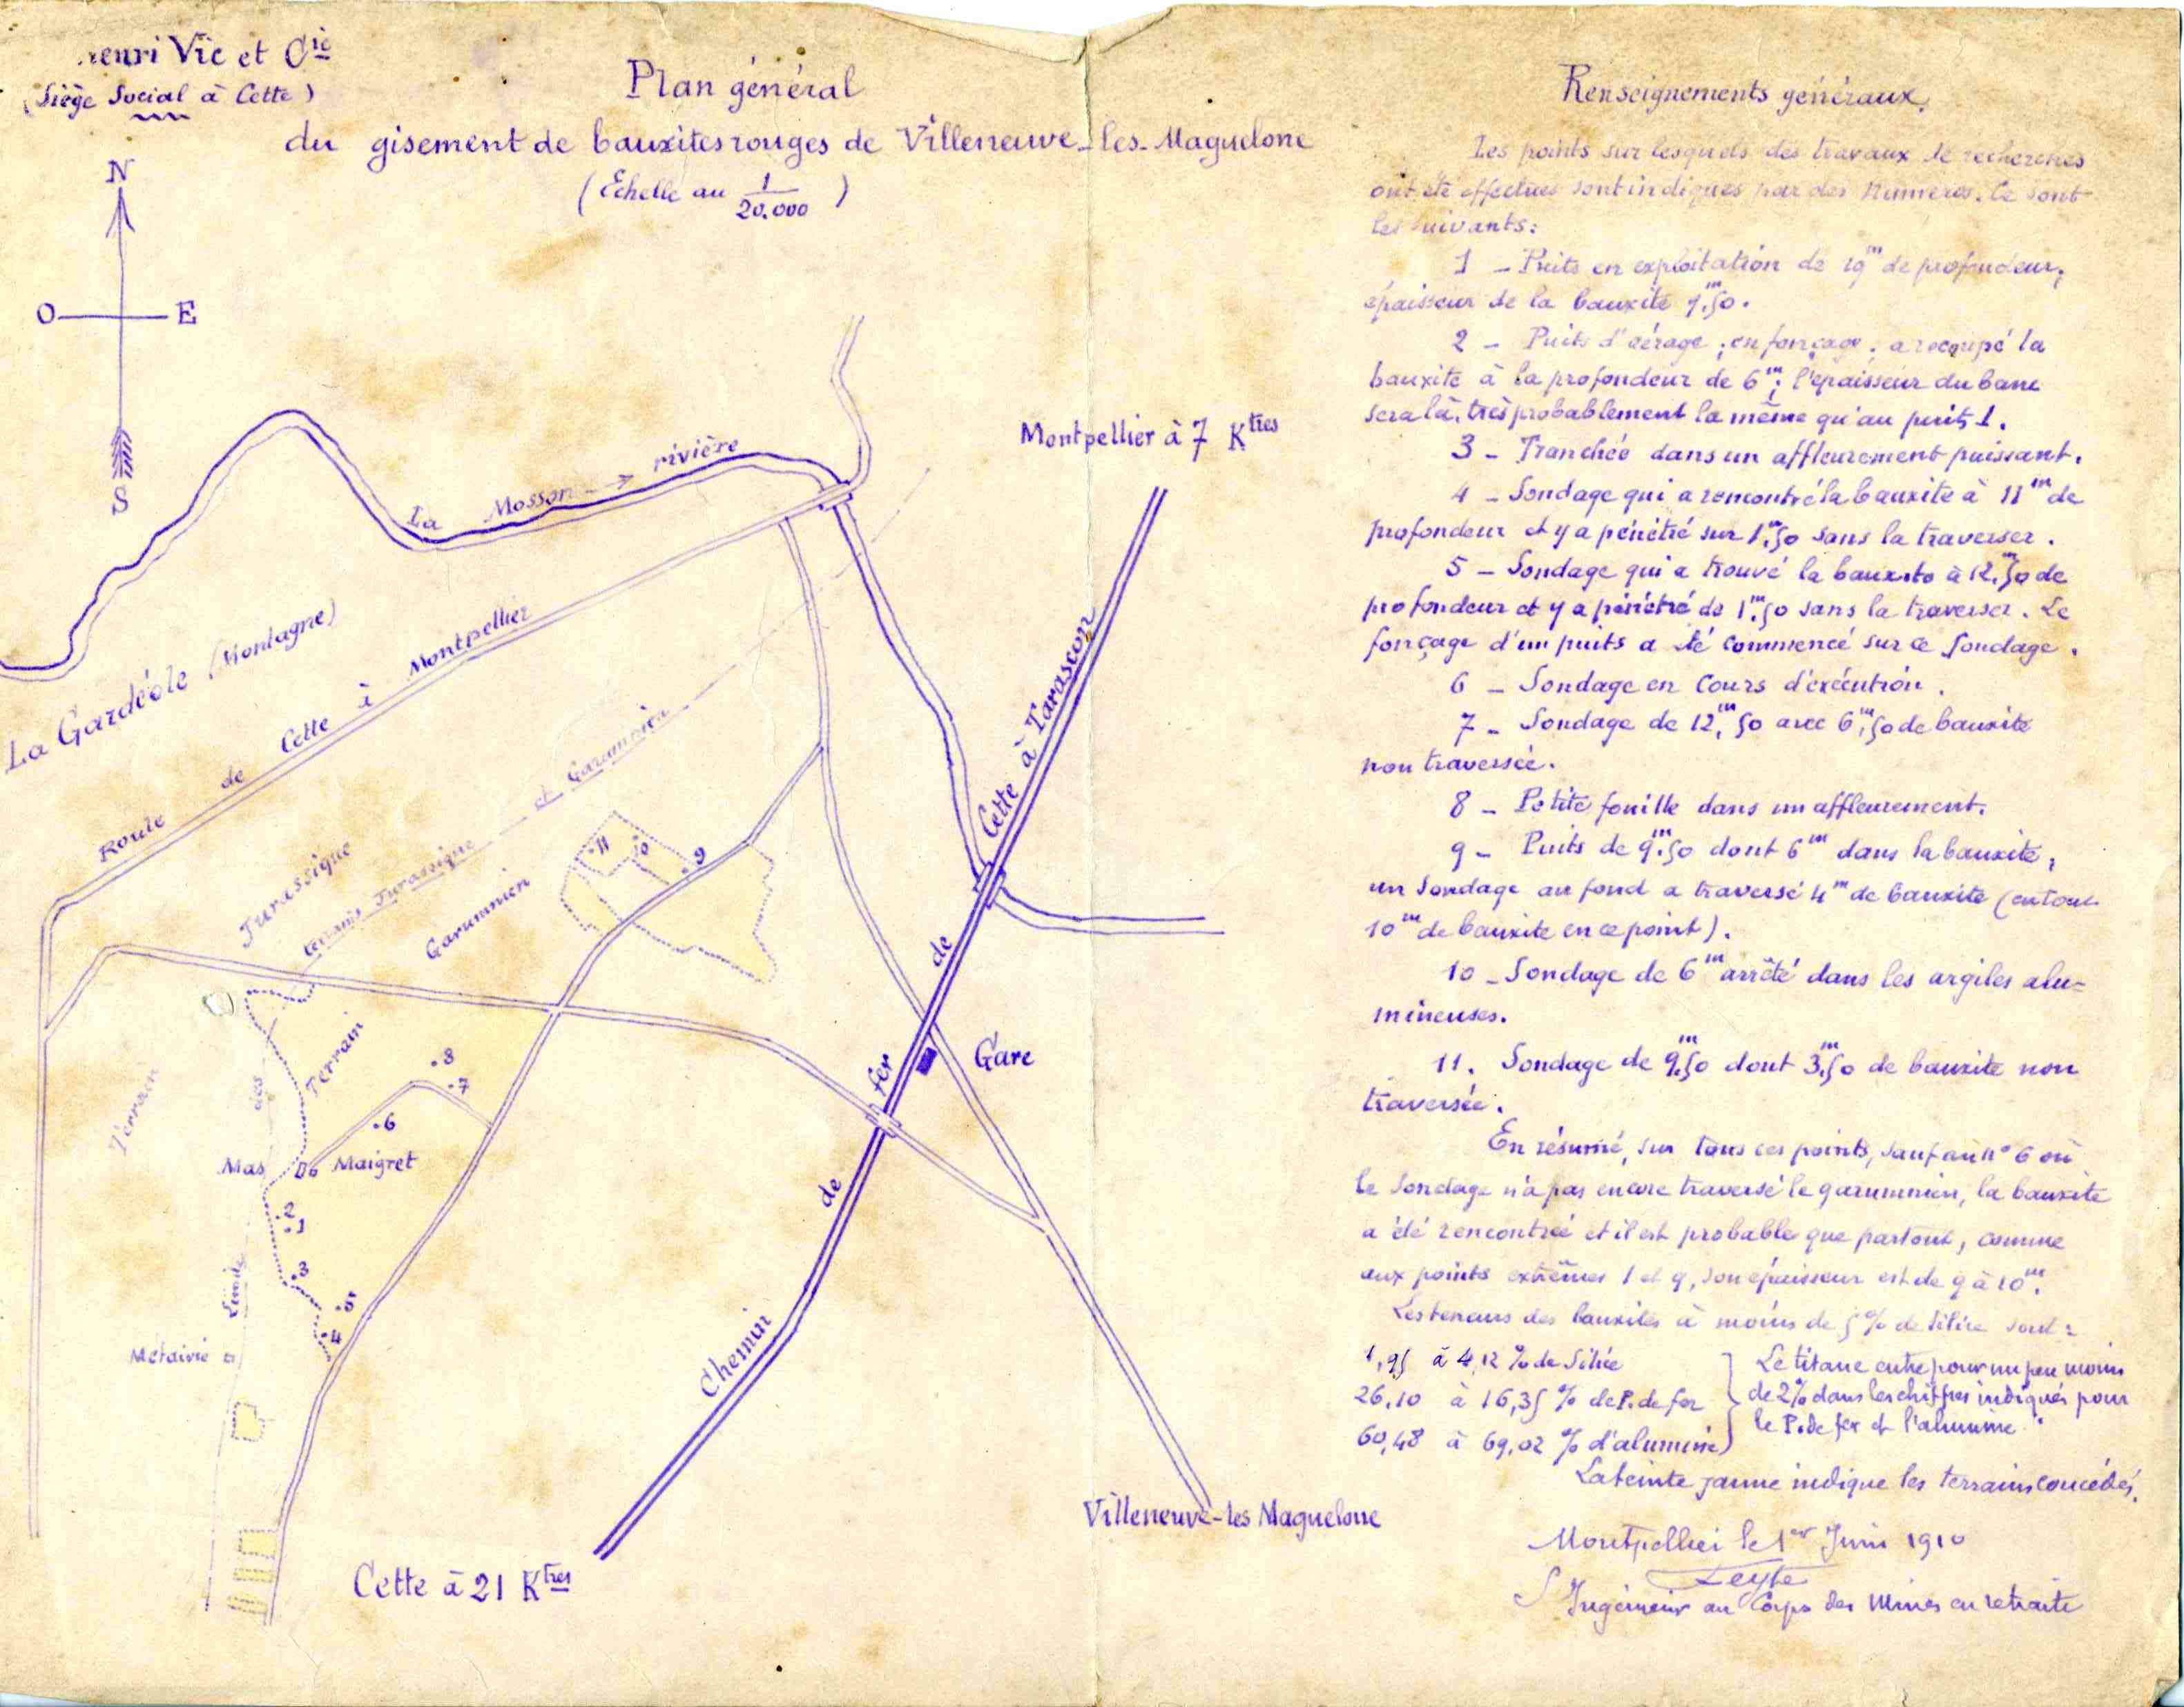 enri Vic et Cie
(Siège Social à Cette)
Plan général
du gisement de bauxites rouges de Villeneuve-les-Maguelone
(Echelle au 1/20.000)
N
O
E
S
Montpellier à 7 Ktres
La Mosson → rivière
La Gardéole (Montagne)
Route de Cette à Montpellier
Jurassique
terrains Jurassique et Garumnien
Garumnien
11
10
9
Chemin de fer de Cette à Tarascon
Gare
Terrain
Terrain
des
8
7
6
Mas Maigret
2
1
3
5
4
Limite
Métairie
Villeneuve-les Maguelone
Cette à 21 Ktres
Renseignements généraux.
Les points sur lesquels des travaux de recherches
ont été effectués sont indiqués par des numéros. Ce sont
les suivants:
1 - Puits en exploitation de 19m de profondeur,
épaisseur de la bauxite 9m,50.
2 - Puits d'aérage, en fonçage, a recoupé la
bauxite à la profondeur de 6m; l'épaisseur du banc
sera là, très probablement la même qu'au puits 1.
3 - Tranchée dans un affleurement puissant.
4 - Sondage qui a rencontré la bauxite à 11m de
profondeur et y a pénétré sur 1m,50 sans la traverser.
5 - Sondage qui a trouvé la bauxite à 12m,50 de
profondeur et y a pénétré de 1m,50 sans la traverser. Le
fonçage d'un puits a été commencé sur ce sondage.
6 - Sondage en cours d'exécution.
7 - Sondage de 12m,50 avec 6m,50 de bauxite
non traversée.
8 - Petite fouille dans un affleurement.
9 - Puits de 9m,50 dont 6m dans la bauxite,
un sondage au fond a traversé 4m de bauxite (en tout
10m de bauxite en ce point).
10 - Sondage de 6m arrêté dans les argiles alu=
mineuses.
11. Sondage de 9m,50 dont 3m,50 de bauxite non
traversée.
En résumé, sur tous ces points, sauf au n° 6 où
le sondage n'a pas encore traversé le garumnien, la bauxite
a été rencontrée et il est probable que partout, comme
aux points extrêmes 1 et 9, son épaisseur est de 9 à 10m.
Les teneurs des bauxites à moins de 5% de silice sont:
1,95 à 4,12 % de Silice
26,10 à 16,35 % de P. de fer
60,48 à 69,02 % d'alumine
Le titane entre pour un peu moins
de 2% dans les chiffres indiqués pour
le P. de fer et l'alumine.
La teinte jaune indique les terrains concédés.
Montpellier le 1er Juin 1910
Ingénieur au Corps des Mines en retraite